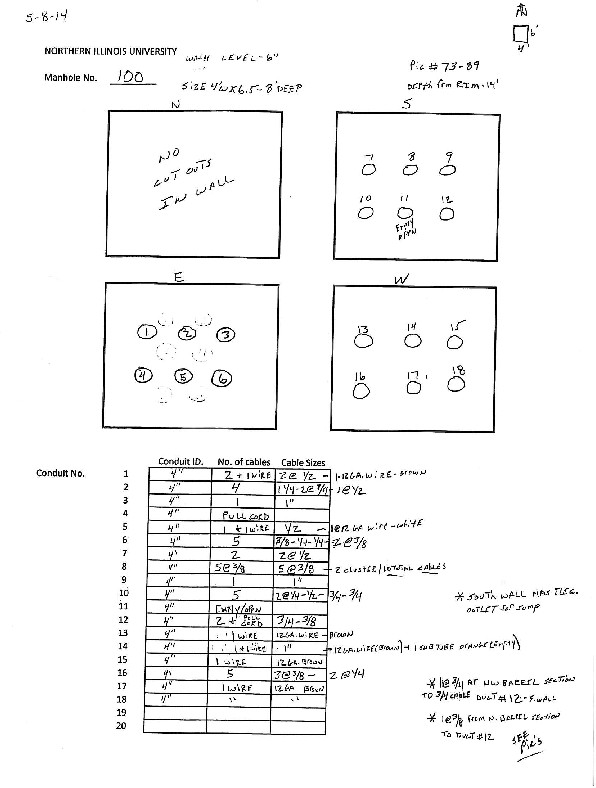 5-8-14
N
6'
4'
NORTHERN ILLINOIS UNIVERSITY
LEVEL-6"
Pic # 73-89
Manhole No. 100
SIZE 4'W X 6.5'- 8' DEEP
DEPTH FROM RIM - 14'
N
S
NO
CUT OUTS
IN WALL
7 8 9
10 11 12
EMPTY
OPEN
E
W
1 2 3
4 5 6
13 14 15
16 17 18
Conduit ID. No. of cables Cable Sizes
Conduit No.
1 4" 2 + 1 WIRE 2@ 1/2 - 1-12GA. WIRE - BROWN
2 4" 4 1 1/4-2@ 3/4- 1@ 1/2
3 4" 1 1"
4 4" PULL CORD
5 4" 1 + 1 WIRE 1/2 - 1@12 GA WIRE - WHITE
6 4" 5 3/8-1/4-1/4- 2@3/8
7 4" 2 2@ 1/2
8 4" 5@3/8 5@3/8 - 2 CLUSTER/10 TOTAL CABLES
9 4" 1 1"
10 4" 5 2@1/4-1/2- 3/4-3/4
11 4" EMPTY/OPEN
12 4" 2 + PULL CORD 3/4-3/8
13 4" 1 WIRE 12GA. WIRE - BROWN
14 4" 1 + 1 WIRE 1" - 12GA. WIRE (BROWN) + 1 SUB TUBE ORANGE (EMPTY)
15 4" 1 WIRE 12GA. BROWN
16 4" 5 3@3/8 - 2@1/4
17 4" 1 WIRE 12GA BROWN
18 4" " "
19
20
* SOUTH WALL HAS ELEC.
OUTLET FOR SUMP
* 1@ 3/4 AT NW BARREL SECTION
TO 3/4 CABLE DUCT #12 - S. WALL
* 1@ 3/8 FROM N. BARREL SECTION
TO DUCT #12
SEE
PIC'S